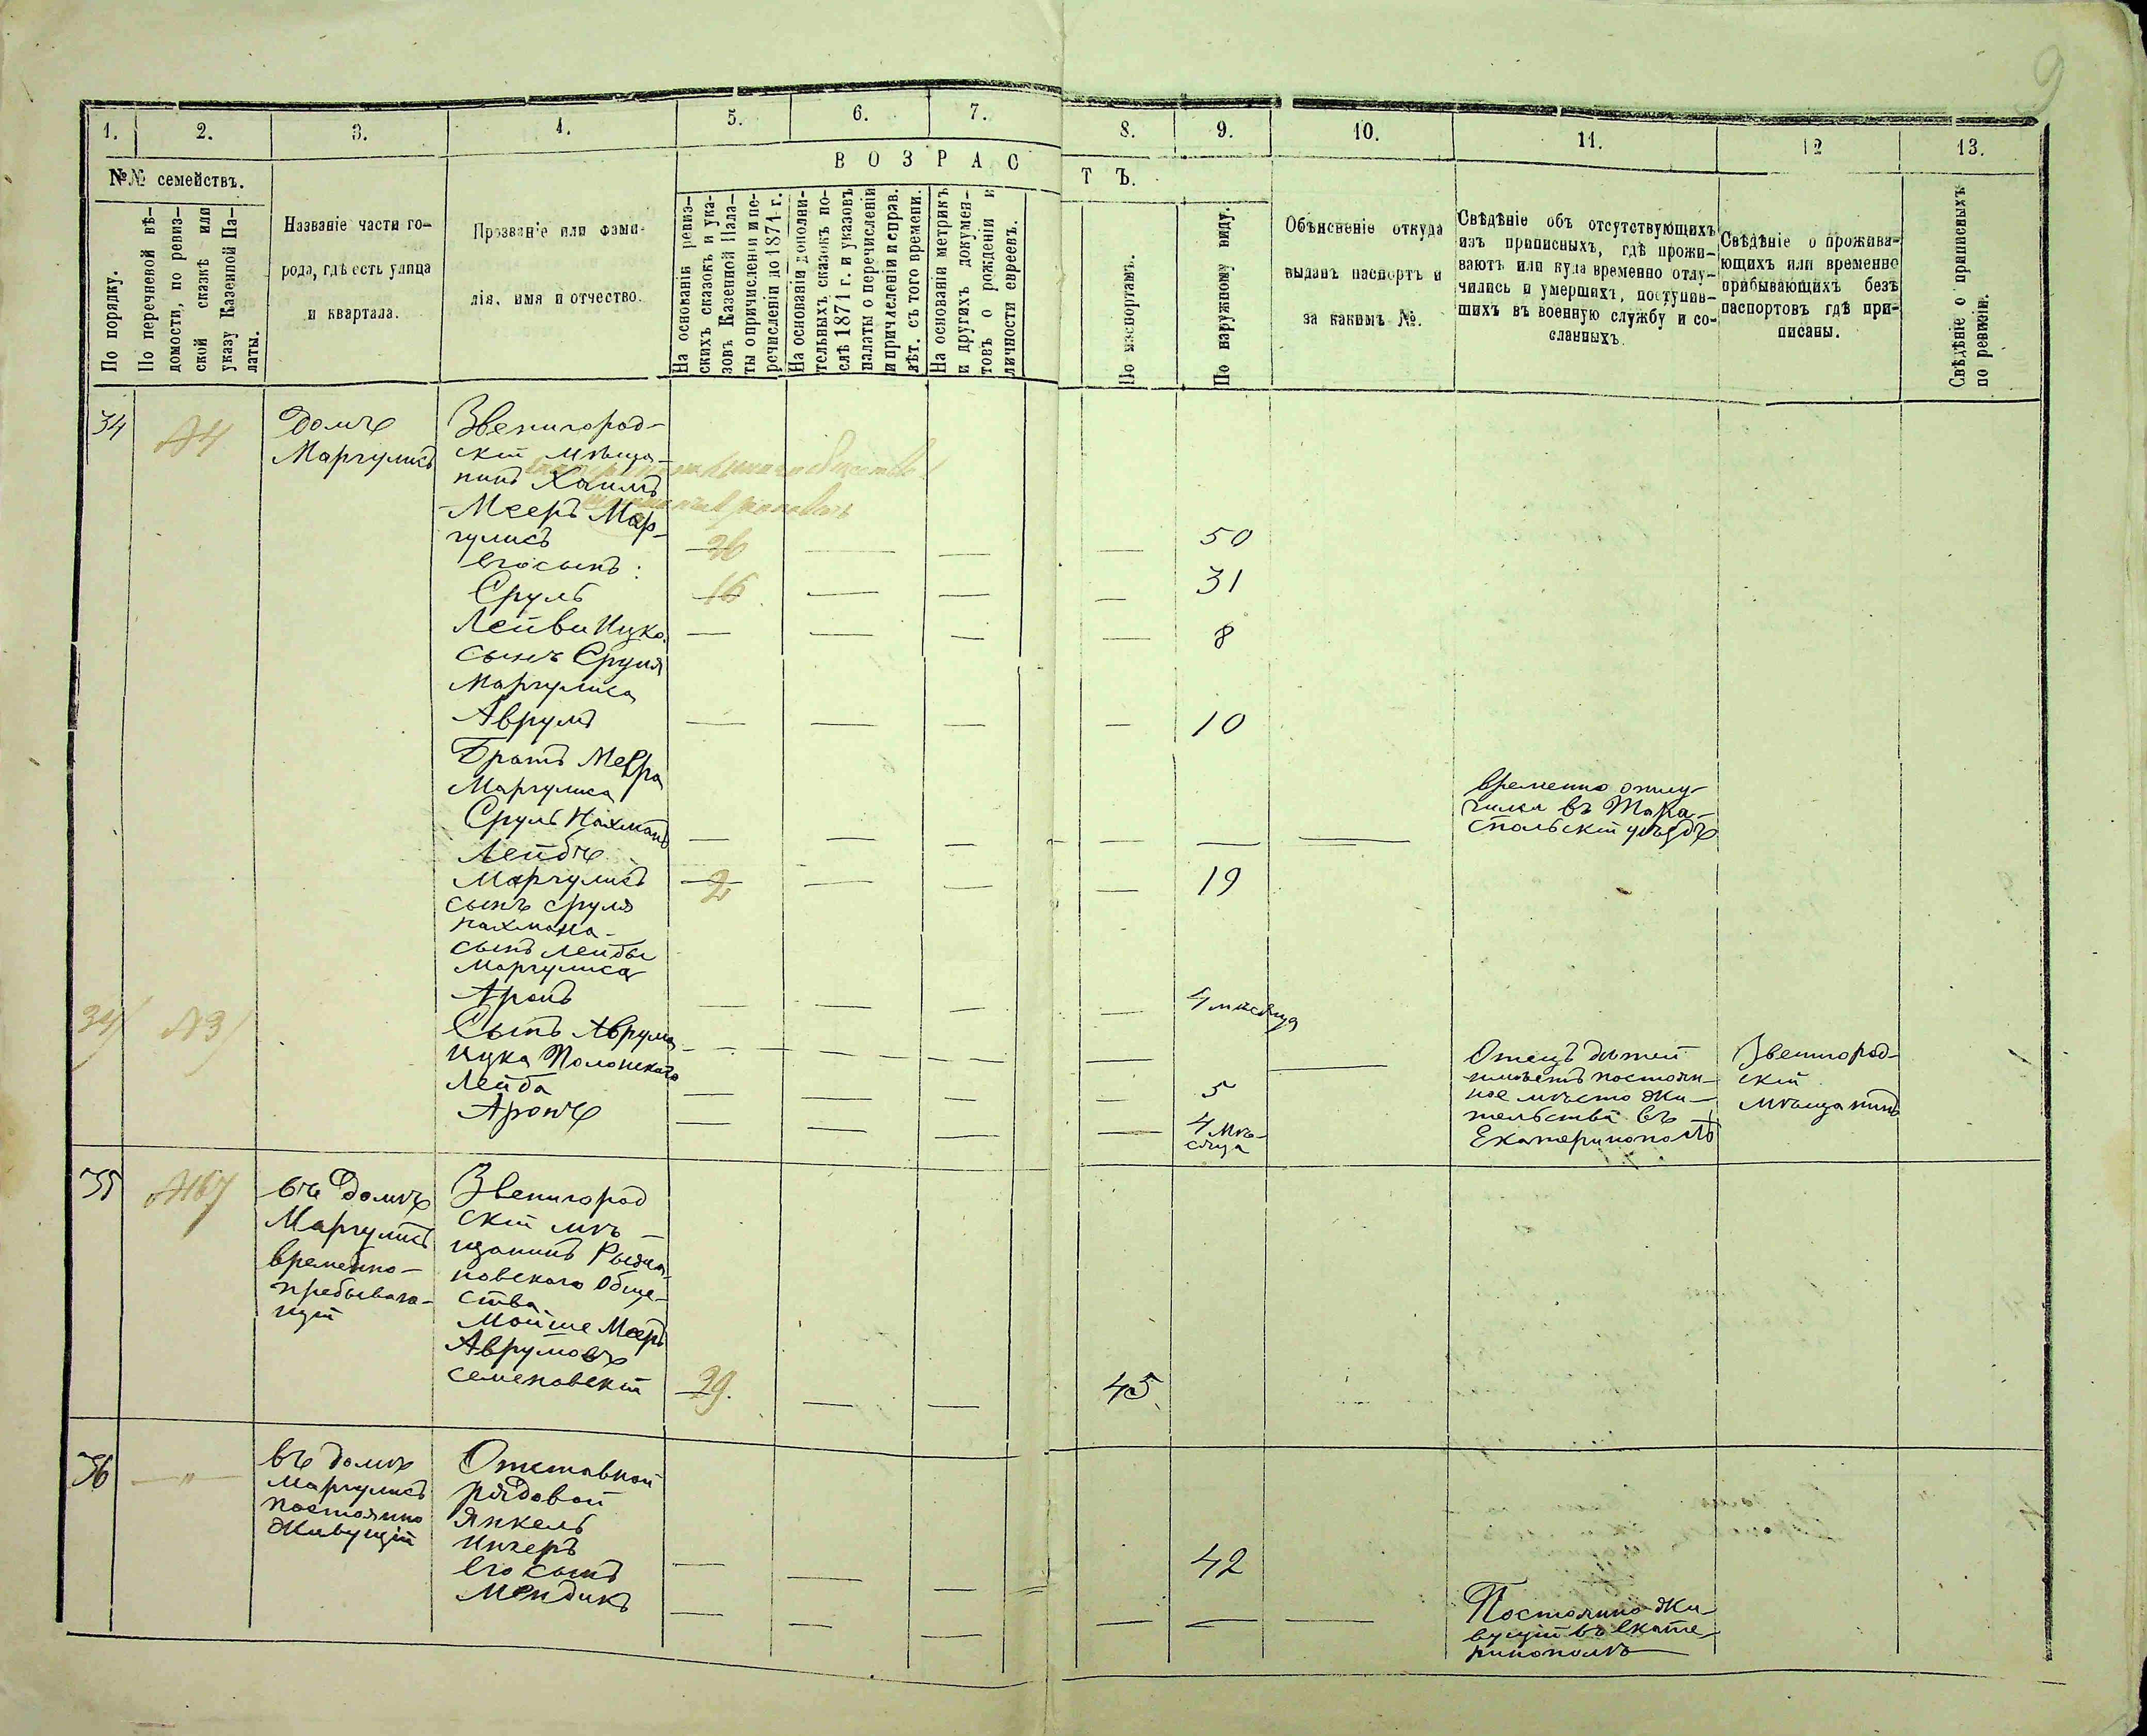 9
1. 2. 3. 4. 5. 6. 7. 8. 9. 10. 11. 12 13.
№№ семействъ.
В О З Р А С Т Ъ.
По порядку.
По перечневой вѣ-
домости, по ревиз-
ской сказкѣ или
указу Казенной Па-
латы.
Названіе части го-
рода, гдѣ есть улица
и квартала.
Прозваніе или фами-
лія, имя и отчество.
На основаніи ревиз-
скихъ сказокъ и ука-
зовъ Казенной Пала-
ты о причисленіи и пе-
речисленіи до 1871 г.
На основаніи дополни-
тельныхъ сказокъ по-
слѣ 1871 г. и указовъ
палаты о перечисленіи
и причисленіи и справ.
лѣт. съ того времени.
На основаніи метрикъ
и другихъ докумен-
товъ о рожденіи и
личности евреевъ.
По паспортамъ.
По наружному виду.
Объясненіе откуда
выданъ паспортъ и
за какимъ №.
Свѣдѣніе объ отсутствующихъ
изъ приписныхъ, гдѣ прожи-
ваютъ или куда временно отлу-
чились и умершихъ, поступив-
шихъ въ военную службу и со-
сланныхъ.
Свѣдѣніе о прожива-
ющихъ или временно
прибывающихъ безъ
паспортовъ гдѣ при-
писаны.
Свѣдѣніе о приписныхъ
по ревизіи.
34
Домъ
Маргулисъ
Звенигород-
скій мѣща-
нинъ Хаимъ
-Мееръ Мар-
гулисъ
26
50
его сынъ:
Сруль
16
31
Лейви Ицко
8
сынъ Сруля
Маргулиса
Аврумъ
10
Братъ Меера
Маргулиса
Сруль Нахманъ
временно отлу-
чился въ Тира-
спольскій уѣздъ
Лейбъ
Маргулисъ
2
19
сынъ сруля
нахмана-
сынъ Лейбы
Маргулиса
Аронъ
4 мисяца
34
№3
Сынъ Аврума
Ицка Полонскаго
Лейба
5
Аронъ
4 мѣ-
сяца
Отецъ дѣтей
имѣетъ постоян-
ное мѣсто жи-
тельства въ
Екатеринополѣ
Звенигород-
скій
мѣщанинъ
35
въ домѣ
Маргулисъ
временно-
пребываю-
щій
Звенигород
скій мѣ-
щанинъ
новскаго Обще-
ства
Мойше Мееръ
Аврумовъ
Семеновскій
29.
45
36
—"—
въ домѣ
Маргулисъ
постоянно
живущій
Отставной
рядовой
Янкель
Ингеръ
42
его сынъ
Мендикъ
Постоянно жи-
вущій въ Екате-
ринополѣ